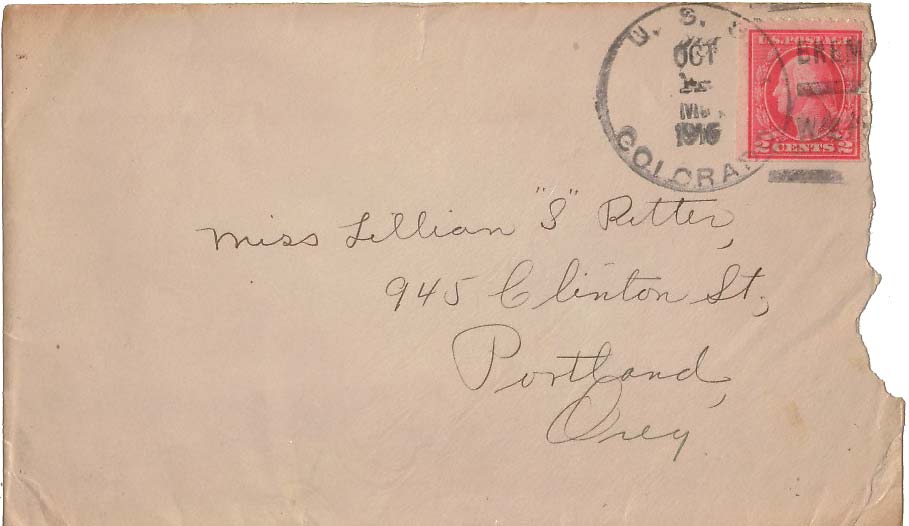 U. S. S.
OCT
M.
1916
COLORADO
BREM
WAS
U.S. POSTAGE
2 CENTS 2
Miss Lillian "S" Ritter,
945 Clinton St,
Portland,
Oreg